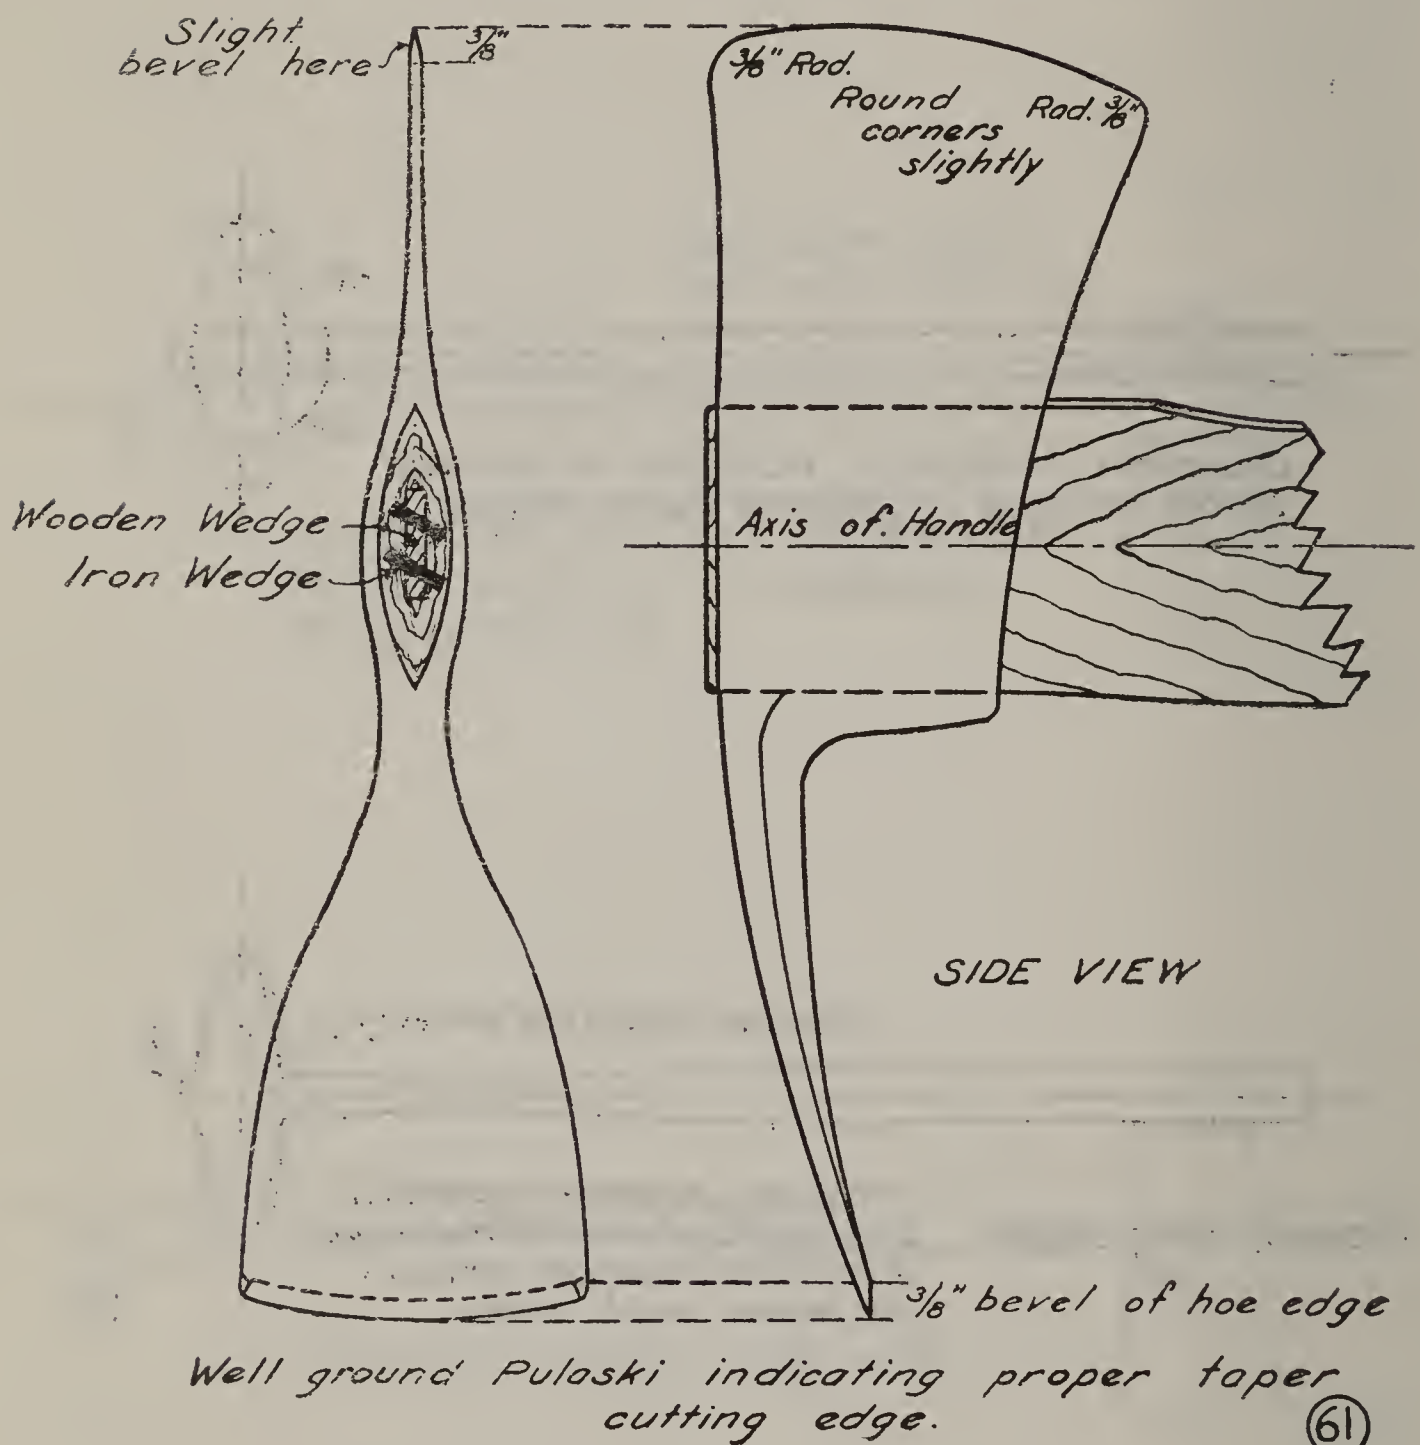 Slight
bevel here
3/8"
3/8" Rad.
Round
corners
slightly
Rad. 3/8"
Wooden Wedge
Iron Wedge
Axis of. Handle
SIDE VIEW
3/8" bevel of hoe edge
Well ground Pulaski indicating proper taper
cutting edge.
61